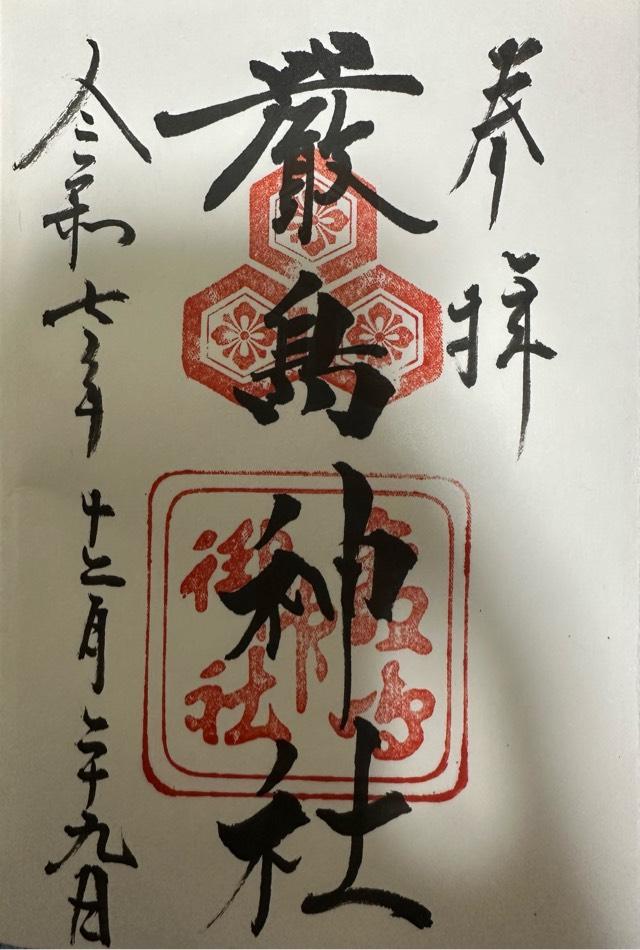 奉拝
厳島神社
厳島
御社
令和七年十二月二十九日